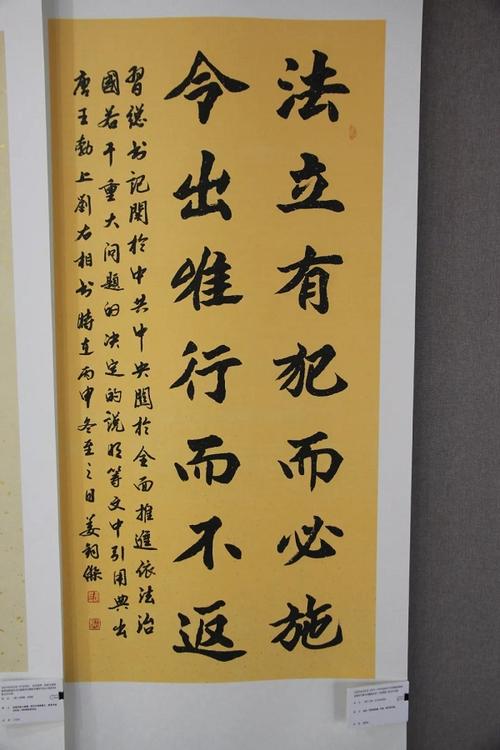 法立有犯而必施
令出唯行而不返
習總书记関於中共中央関於全面推進依法治
國若干重大问題的决定的説明等文中引用典出
唐王勃上劉右相书時在丙申冬至之日姜